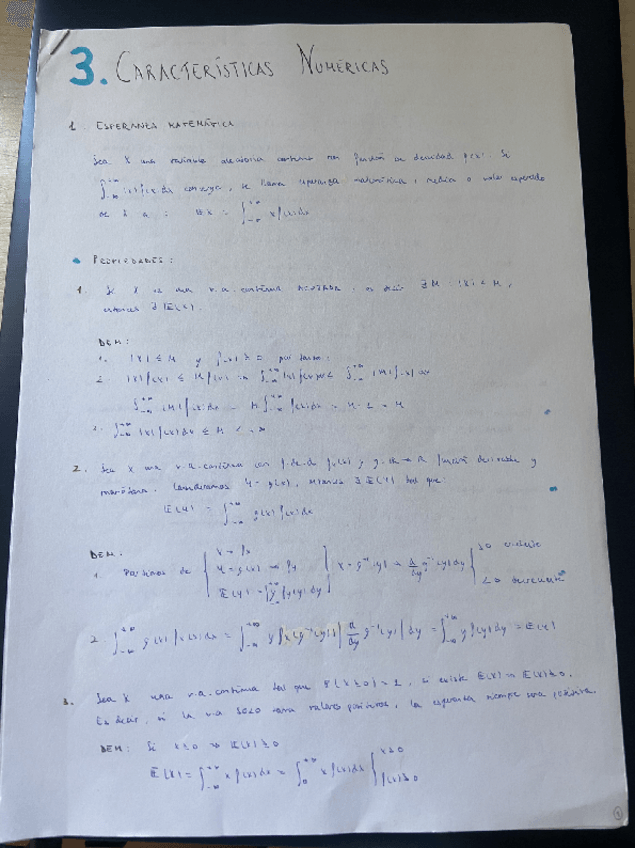 3. CARACTERÍSTICAS NUMÉRICAS
1. ESPERANZA MATEMÁTICA
Sea X una variable aleatoria continua con función de densidad f(x). Si
∫_{-∞}^{+∞} |x| f(x) dx converge, se llama esperanza matemática, media o valor esperado
de X a: EX = ∫_{-∞}^{+∞} x f(x) dx
• PROPIEDADES:
1. Si X es una v.a. continua ACOTADA, es decir ∃M: |X| ≤ M,
entonces ∃ E(X).
DEM:
1. |X| ≤ M y f(x) ≥ 0 por tanto:
2. |X| f(x) ≤ M f(x) ⇒ ∫_{-∞}^{+∞} |x| f(x) dx ≤ ∫_{-∞}^{+∞} |M| f(x) dx
∫_{-∞}^{+∞} |M| f(x) dx = M ∫_{-∞}^{+∞} f(x) dx = M · 1 = M
∫_{-∞}^{+∞} |x| f(x) dx ≤ M < +∞
2. Sea X una v.a. continua con f.d.d. f_X(x) y g: R → R función derivable y
monótona. Consideramos Y = g(X), ∃ E(Y) tal que:
E(Y) = ∫_{-∞}^{+∞} g(x) f(x) dx
DEM.
1. Partimos de { X → f_X
Y = g(X) → f_Y
E(Y) = ∫ y f_Y(y) dy } X = g⁻¹(y) → d/dy g⁻¹(y) dy { >0 creciente
<0 decreciente
2. ∫_{-∞}^{+∞} g(x) f_X(x) dx = ∫_{-∞}^{+∞} y f_X(g⁻¹(y)) | d/dy g⁻¹(y) | dy = ∫_{-∞}^{+∞} y f(y) dy = E(Y)
3. Sea X una v.a. continua tal que P(X ≥ 0) = 1, si existe E(X) ⇒ E(X) ≥ 0.
Es decir, si la v.a. SOLO toma valores positivos, la esperanza siempre será positiva.
DEM: Si X ≥ 0 ⇒ E(X) ≥ 0
E(X) = ∫_{-∞}^{+∞} x f(x) dx = ∫_{0}^{+∞} x f(x) dx { x ≥ 0
f(x) ≥ 0
1